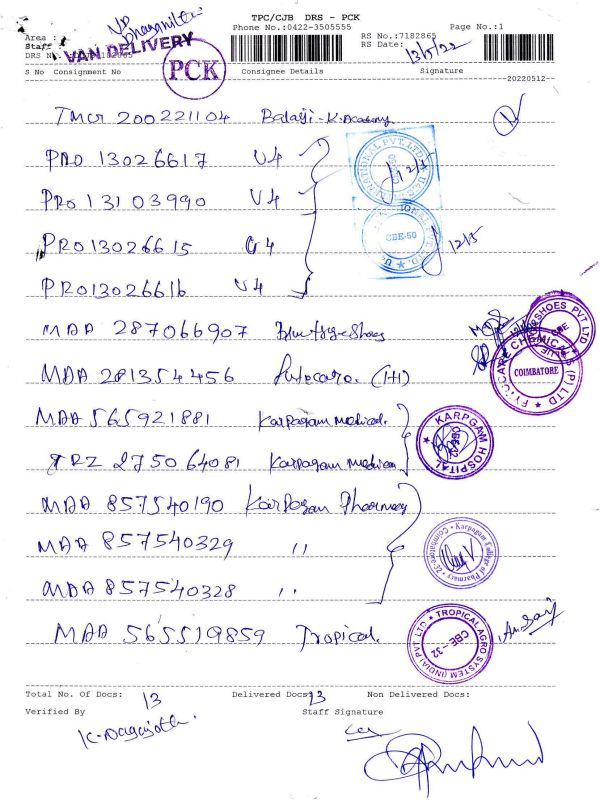 TPC/CJB DRS - PCK
Phone No.:0422-3505555 Page No.:1
Area :
RS No.:7182865
Staff
RS Date: 13/5/22
VAN DELIVERY
DRS N
PCK
S No Consignment No Consignee Details Signature
20220512
TMCR 200221104 Balaji - K. Academy
PRO 13026617 U4
PRO 13103990 U4
12/5
CBE-50
PRO 13026615 U4
12/5
PRO 13026616 U4
MAA 287066907
MAA 281354456
COIMBATORE
MAA 565921881 Karpagam medical
KARPGAM HOSPITAL
CBE-32
TRZ 275064081 Karpagam medical
MAA 857540190 Karpagam Pharmacy
MAA 857540329 "
Karpagam College of Pharmacy
MAA 857540328 "
MAA 565519859 Tropical
TROPICAL AGRO SYSTEM (INDIA) PVT. LTD
CBE-32
Total No. Of Docs: 13 Delivered Docs: 13 Non Delivered Docs:
Verified By Staff Signature